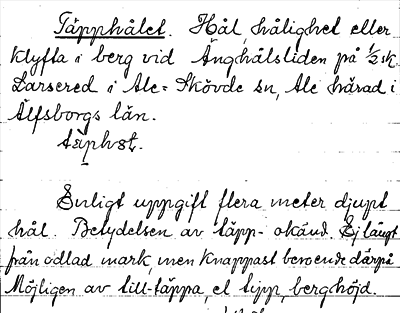 Täpphålet. Hål, hålighet eller
klyfta i berg vid Ånghålsliden på 1/2 sk.
Larsered i Ale-Skövde sn, Ale härad i
Älfsborgs län.
Enligt uppgift flera meter djupt
hål. Betydelsen av täpp- okänd. Ej långt
från odlad mark, men knappast beroende därpå
Möjligen av till-täppa, el tipp, berghöjd.